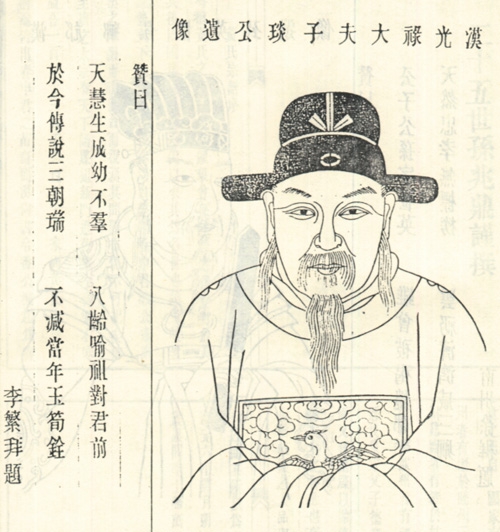 漢光祿大夫子琰公遺像
贊曰
天慧生成幼不羣 八齡喻祖對君前
於今傳說三朝瑞 不减當年玉筍銓
李繁拜題